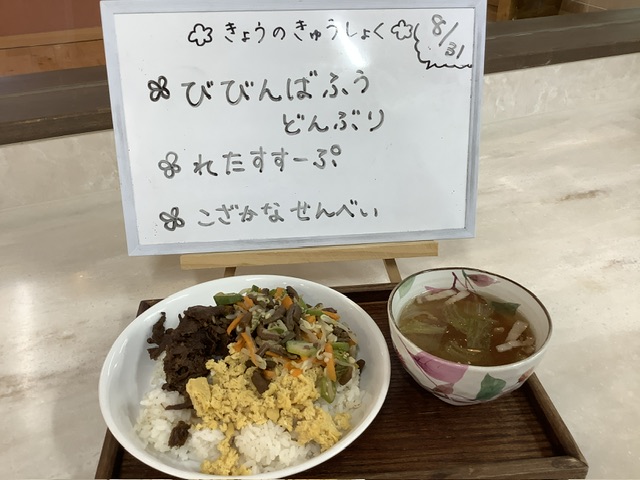 きょうのきゅうしょく
8/31
びびんばふう
どんぶり
れたすすーぷ
こざかなせんべい